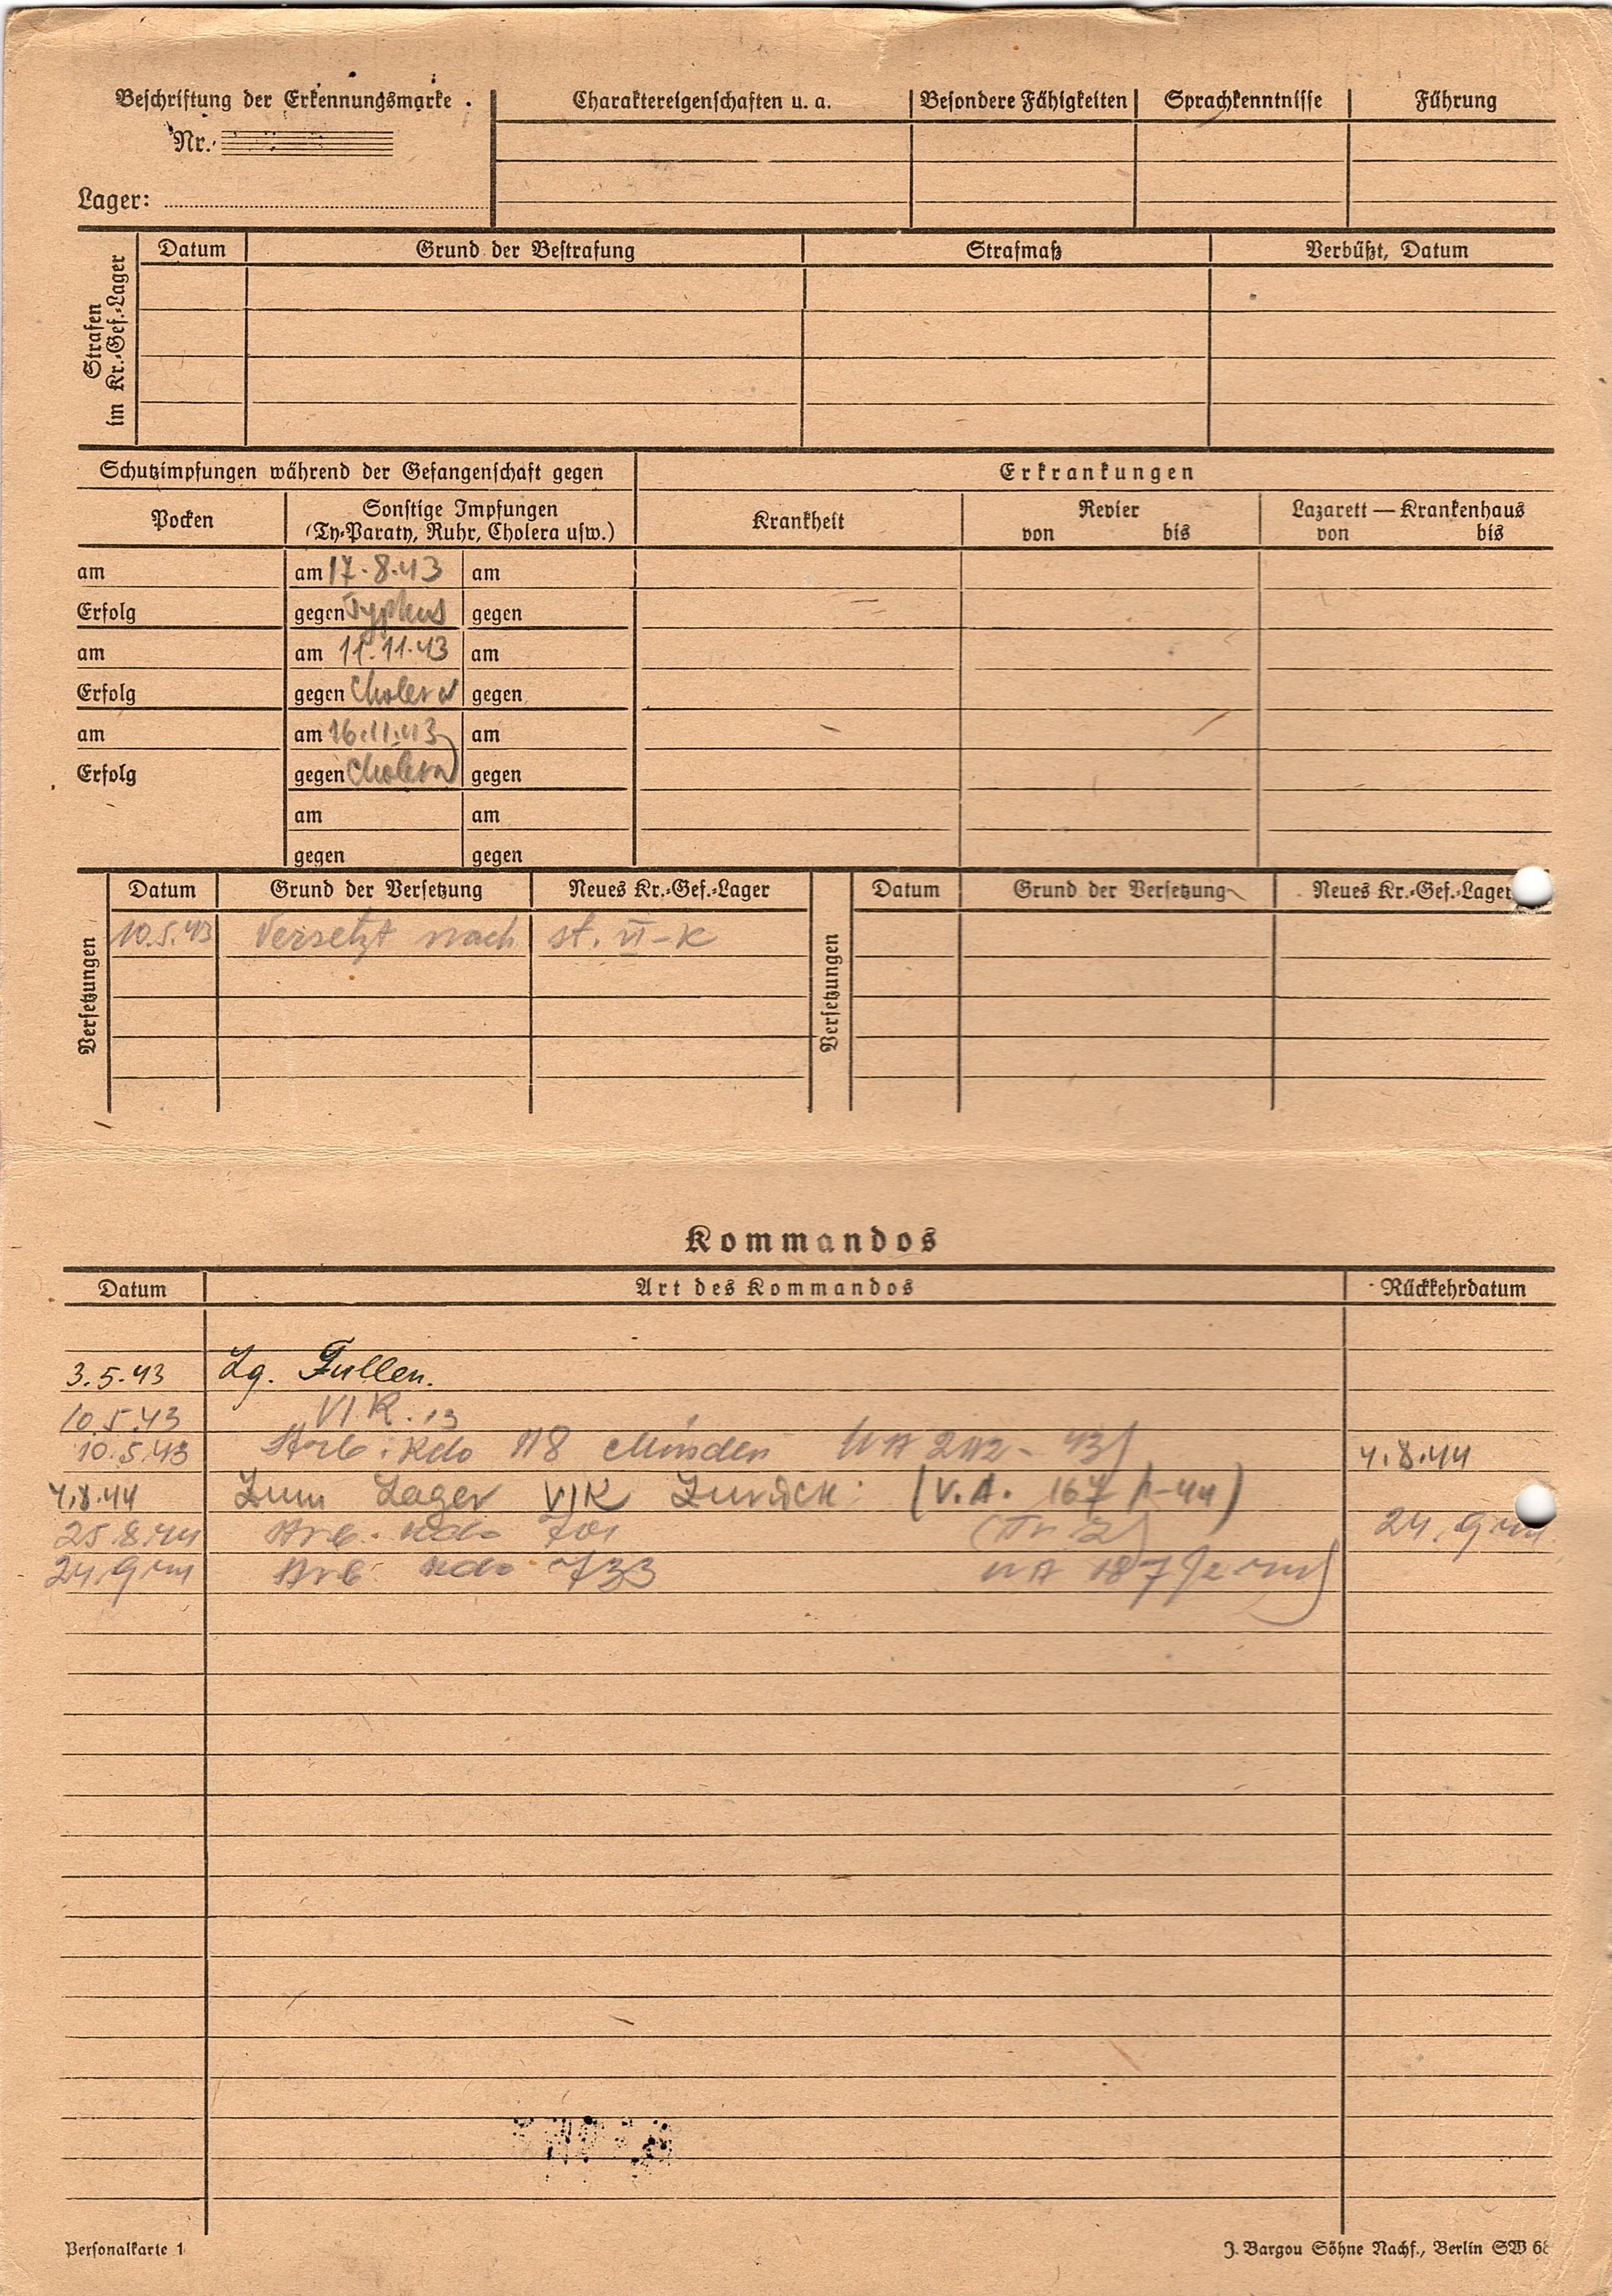 Beschriftung der Erkennungsmarke
Nr.
Lager:
Charaktereigenschaften u. a.
Besondere Fähigkeiten
Sprachkenntnisse
Führung
Strafen
im Kr.-Gef.-Lager
Datum
Grund der Bestrafung
Strafmaß
Verbüßt, Datum
Schutzimpfungen während der Gefangenschaft gegen
Erkrankungen
Pocken
Sonstige Impfungen
(Ty-Paraty, Ruhr, Cholera usw.)
Krankheit
Revier
von bis
Lazarett — Krankenhaus
von bis
am am 17.8.43 am
Erfolg gegen Typhus gegen
am am 11.11.43 am
Erfolg gegen Cholera gegen
am am 16.11.43 am
Erfolg gegen Cholera gegen
am am
gegen gegen
Versetzungen
Datum Grund der Versetzung Neues Kr.-Gef.-Lager
10.5.43 Versetzt nach st. VI-K
Versetzungen
Datum Grund der Versetzung Neues Kr.-Gef.-Lager
Kommandos
Datum Art des Kommandos Rückkehrdatum
3.5.43 Lg. Fullen.
10.5.43 VI K.
10.5.43 Arb. Kdo 118 Minden 43) 4.8.44
4.8.44 Zum Lager VIK Zurück (V.A. 167
25.8.44 Arb. Kdo 701 24.9.44
24.9.44 Arb. Kdo 733
Personalkarte 1
J. Bargou Söhne Nachf., Berlin SW 68